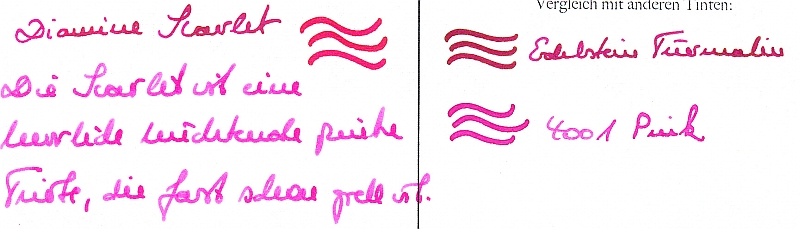 Diamine Scarlet
Die Scarlet ist eine
leuchtende pinke
Tinte, die fast schon grell ist.
Vergleich mit anderen Tinten:
Edelstein Turmalin
4001 Pink